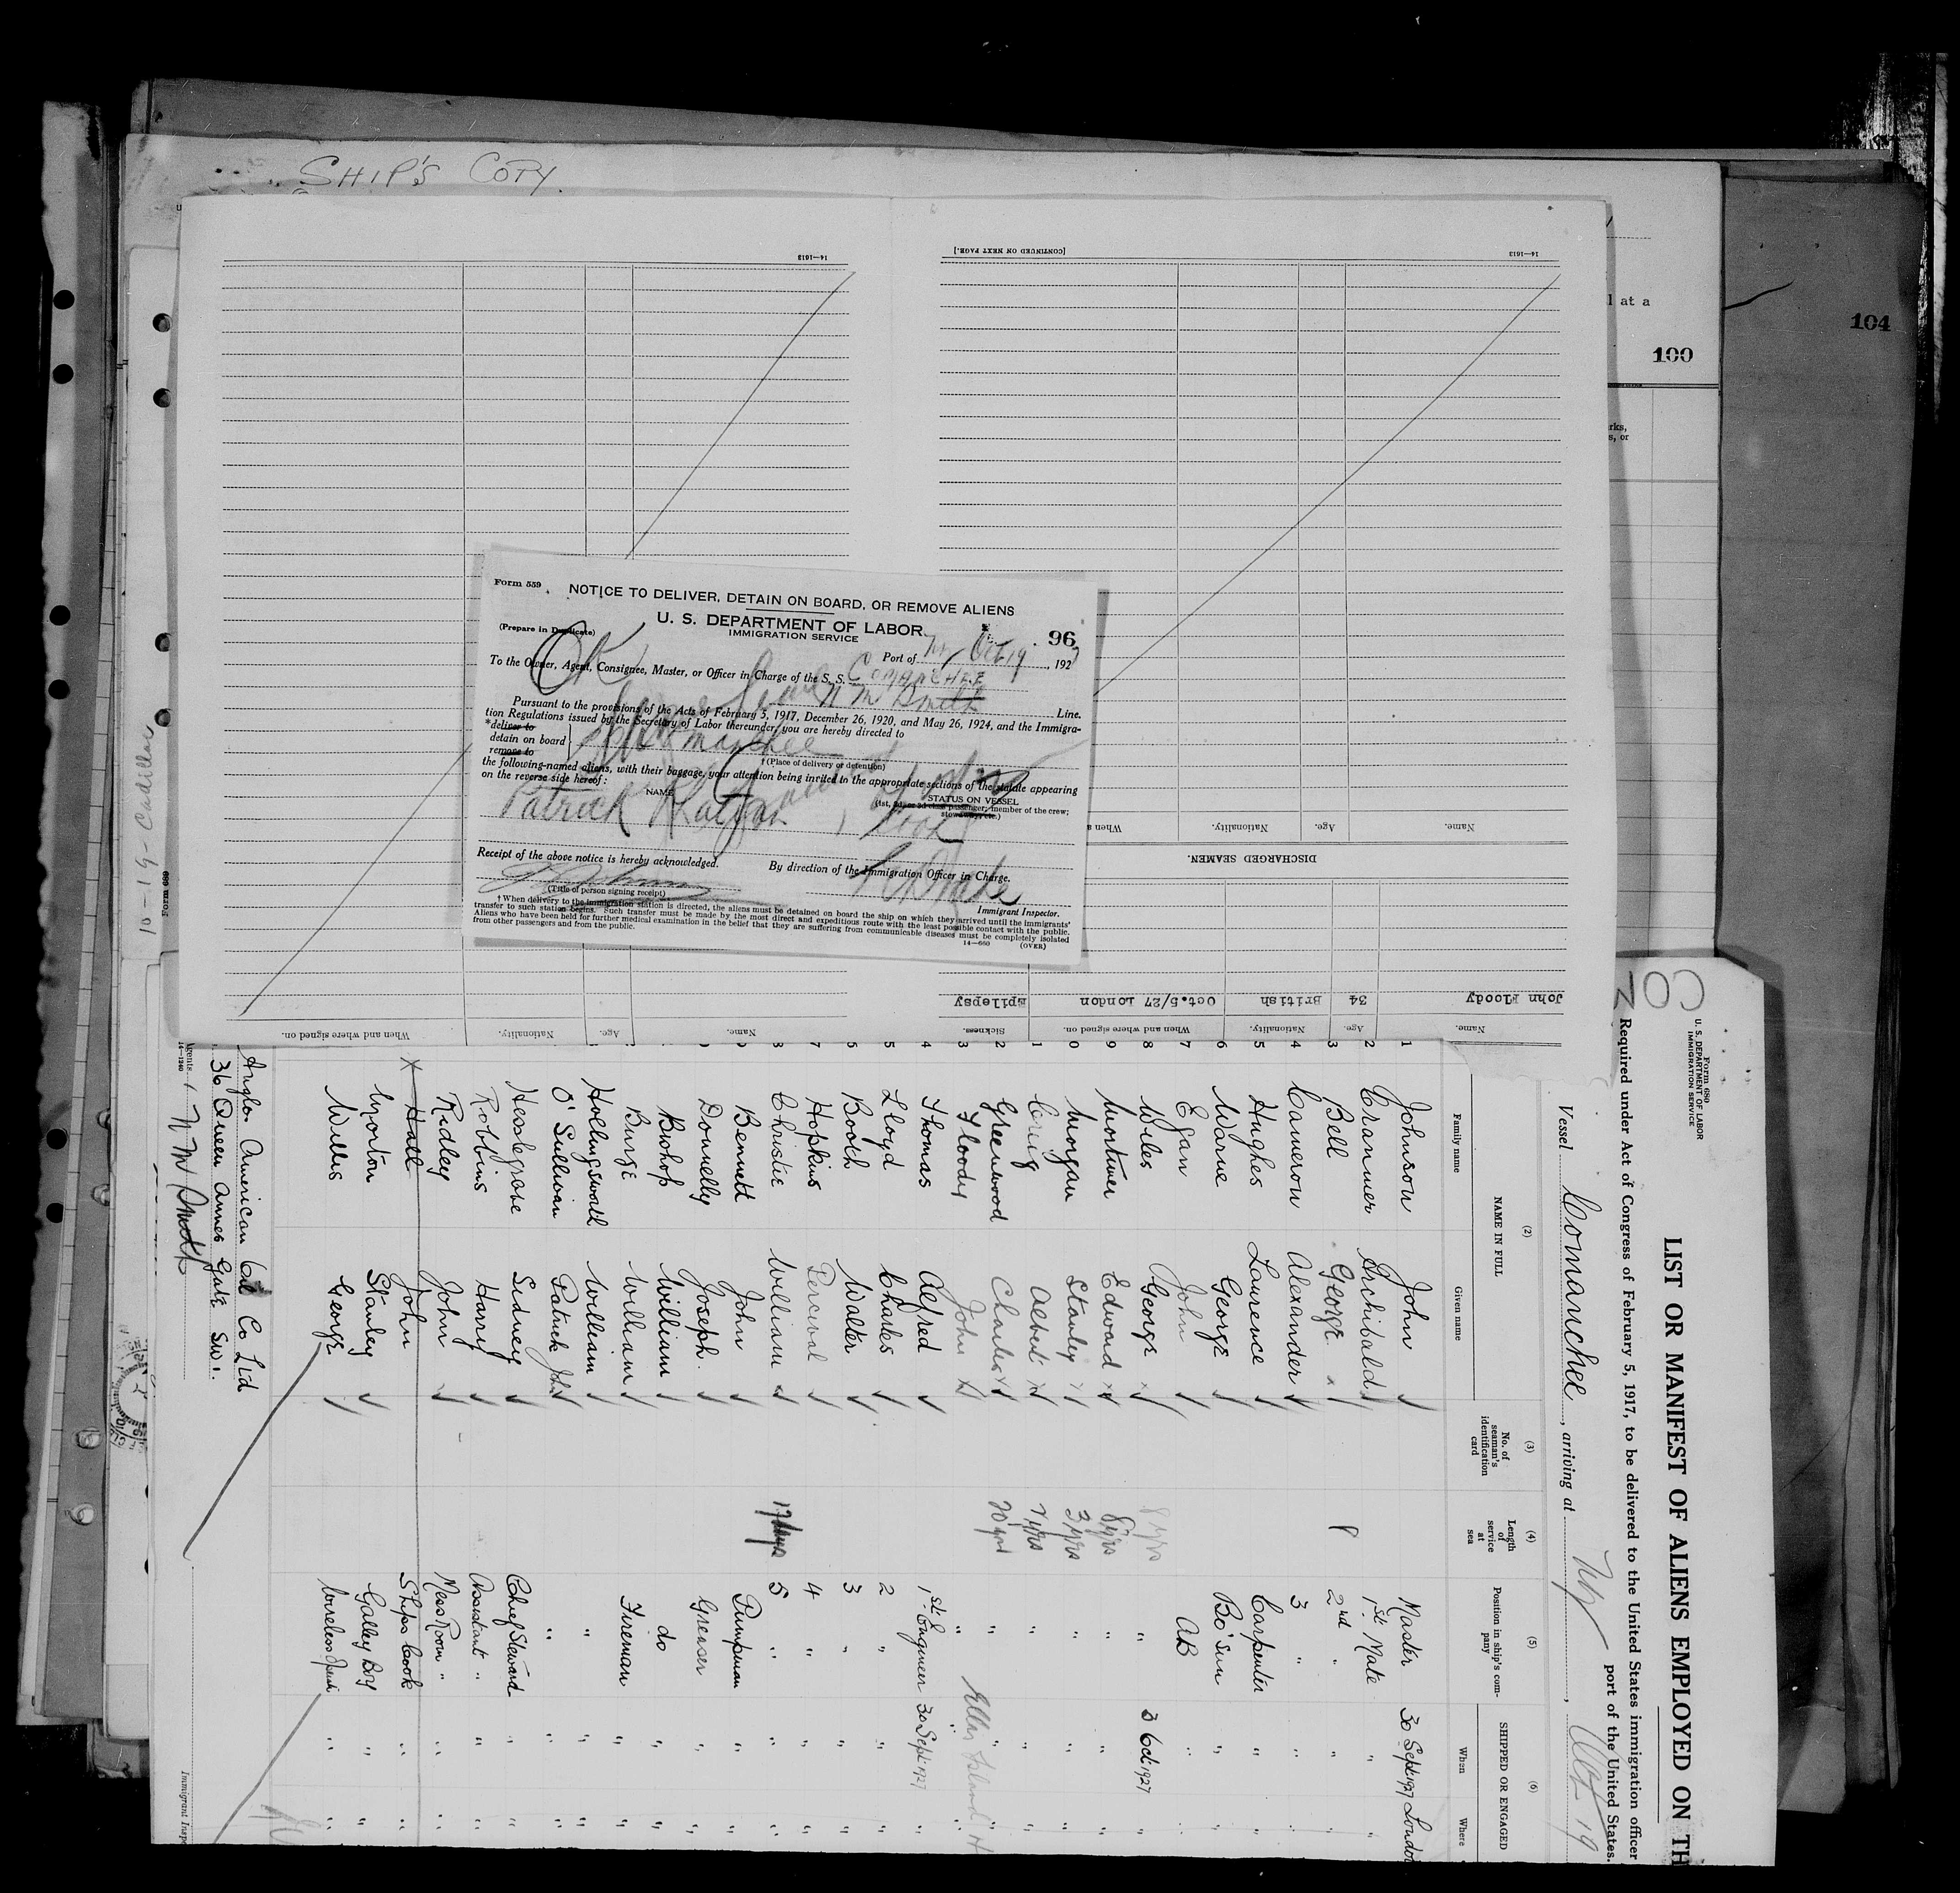 SHIP'S COPY.
l at a
104
100
rks,
s, or
10-19-Cadillac
Form 689
[CONTINUED ON NEXT PAGE.]
14—1613
14—1613
Form 559
NOTICE TO DELIVER, DETAIN ON BOARD, OR REMOVE ALIENS
U. S. DEPARTMENT OF LABOR
IMMIGRATION SERVICE
96
(Prepare in Duplicate)
OK
Port of Oct 19, 1927
To the Owner, Agent, Consignee, Master, or Officer in Charge of the S. S. COMANCHEE
N M Smith Line.
Pursuant to the provisions of the Acts of February 5, 1917, December 26, 1920, and May 26, 1924, and the Immigra-
tion Regulations issued by the Secretary of Labor thereunder, you are hereby directed to
*deliver to
detain on board
remove to
Comanchee
†(Place of delivery or detention)
the following-named aliens, with their baggage, your attention being invited to the appropriate sections of the statute appearing
on the reverse side hereof:
NAME
STATUS ON VESSEL
(1st, 2d, or 3d class passenger; member of the crew;
stowaway, etc.)
Patrick
Cook
Receipt of the above notice is hereby acknowledged.
By direction of the Immigration Officer in Charge.
(Title of person signing receipt)
Immigrant Inspector.
†When delivery to the immigration station is directed, the aliens must be detained on board the ship on which they arrived until the immigrants'
transfer to such station begins. Such transfer must be made by the most direct and expeditious route with the least possible contact with the public.
Aliens who have been held for further medical examination in the belief that they are suffering from communicable diseases must be completely isolated
from other passengers and from the public.
14—660 (OVER)
When a
Nationality.
Age.
Name.
DISCHARGED SEAMEN.
John Floody 34 British Oct.5/27 London Epilepsy
Name. Age. Nationality. When and where signed on. Sickness.
Name. Age. Nationality. When and where signed on.
CO
Form 680
U. S. DEPARTMENT OF LABOR
IMMIGRATION SERVICE
LIST OR MANIFEST OF ALIENS EMPLOYED ON TH
Required under Act of Congress of February 5, 1917, to be delivered to the United States immigration officer
port of the United States.
Vessel Comanchee, arriving at NY, Oct 19
(2) (3) (4) (5) (6)
NAME IN FULL
Family name Given name
No. of seaman's identification card
Length of service at sea
Position in ship's com-pany
SHIPPED OR ENGAGED
When Where
1 Johnson John Master 30 Sept 1927 London
2 Cranmer Archibald 1st Mate " "
3 Bell George 2nd " " "
4 Cameron Alexander 3 " " "
5 Hughes Laurence Carpenter " "
6 Warne George Bo'sun " "
7 Egan John AB " "
8 Wiles George 8 yrs " 3 Oct 1927 "
9 Mortimer Edward 8 yrs " " "
0 Morgan Stanley 3 yrs " " "
1 Craig Albert 7 yrs " " "
2 Greenwood Charles 20 yrs " " "
3 Floody John " Ellis Island H
4 Thomas Alfred 1st Engineer 30 Sept 1927 "
5 Lloyd Charles 2 " " "
5 Booth Walter 3 " " "
7 Hopkins Percival 4 " " "
8 Christie William 5 " " "
Bennett John Pumpman " "
Donnelly Joseph Greaser " "
Bishop William do " "
Burge William Fireman " "
Hollingsworth William " " "
O'Sullivan Patrick John " " "
Heslegrave Sidney Chief Steward " "
Robbins Harry Assistant " " "
Ridley John Mess Room " " "
X Hall John Ships Cook " "
Morton Stanley Galley Boy " "
Willis George Wireless " "
Anglo American Oil Co Ltd
36 Queen Annes Gate SW1.
Agents N M Smith
14—1240
Immigrant Inspe